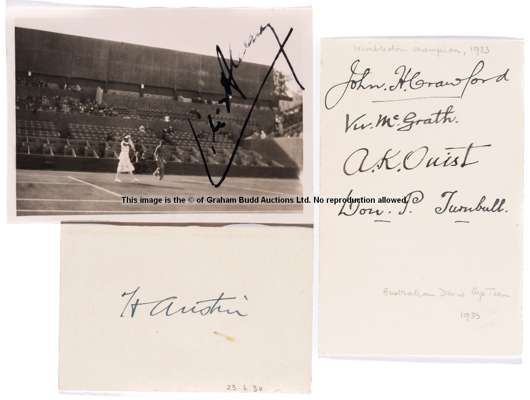 This image is the © of Graham Budd Auctions Ltd. No reproduction allowed.
Wimbledon Champion, 1933
John. H. Crawford
Viv. McGrath.
A. K. Quist
Don. P. Turnbull.
Australian Davis Cup Team
1933
H Austin
23.6.34